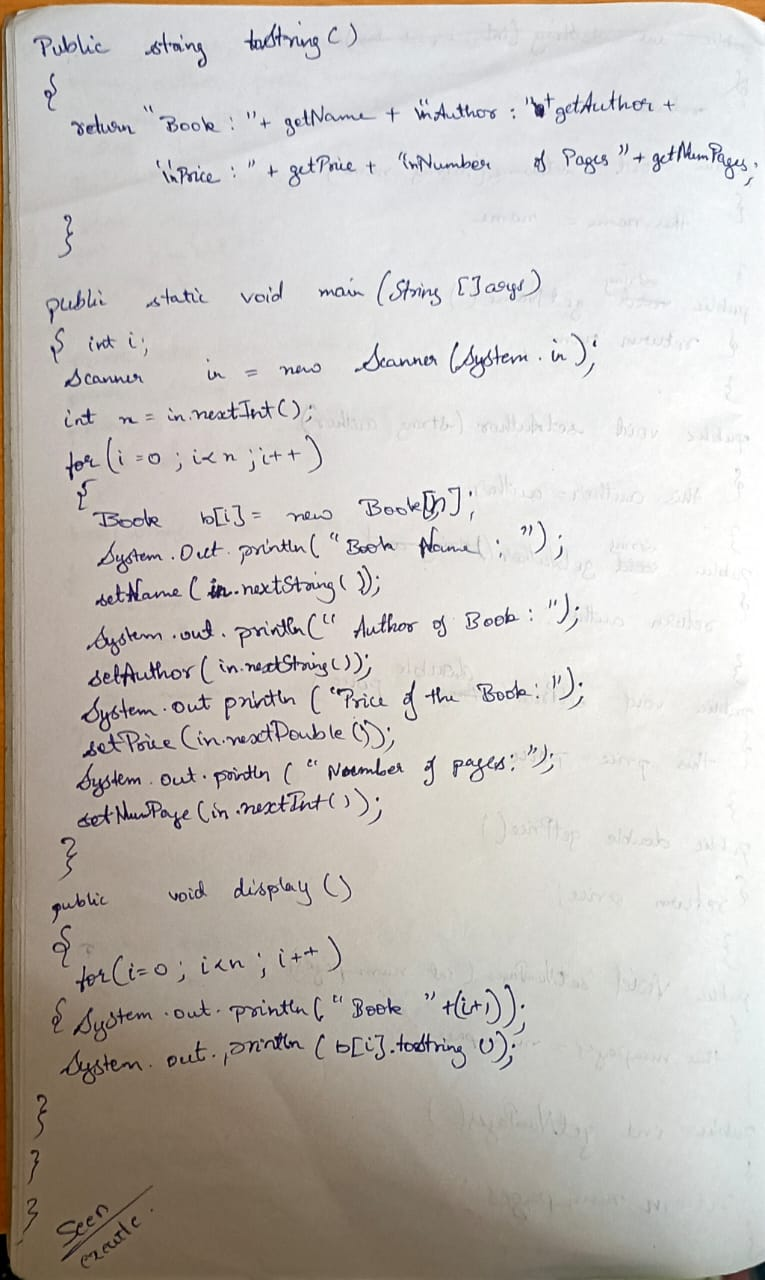 Public string toString()
{
return "Book : "+ getName + "\nAuthor : "+ getAuthor +
"\nPrice : " + getPrice + "\nNumber of Pages " + getNumPages;
}
public static void main (String []args)
{ int i;
Scanner in = new Scanner (System.in);
int n = in.nextInt();
for (i=0 ; i<n ; i++)
{
Book b[i] = new Book[n];
System.Out.println( "Book Name : ");
setName (in.nextString( ));
System.out.println(" Author of Book : ");
setAuthor( in.nextString());
System.out println ( "Price of the Book: ");
setPrice (in.nextDouble ());
System.out.println ( " Noumber of pages: ");
setNumPage (in.nextInt());
}
public void display ()
{
for(i=0 ; i<n ; i++)
{ System.out.println( " Book " +(i+1));
System.out.println ( b[i].toString ());
}
}
}
Seen
execute.